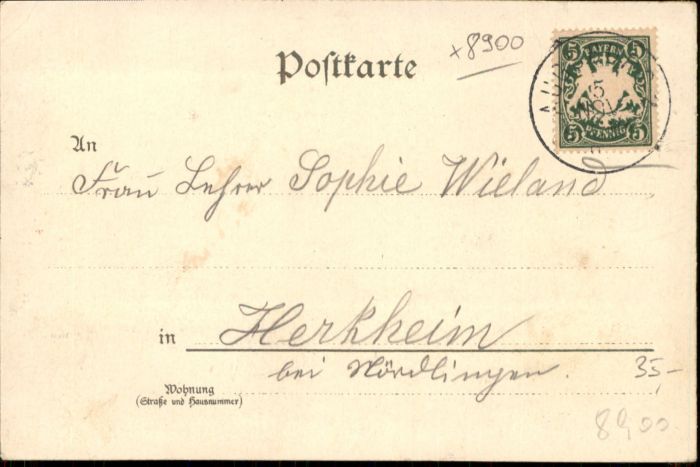 ×8900
Postkarte
5 BAYERN 5
5 PFENNIG 5
15
NOV
An
Frau Lehrer Sophie Wieland
in Herkheim
bei Nördlingen.
35,-
Wohnung
(Straße und Hausnummer)
8900